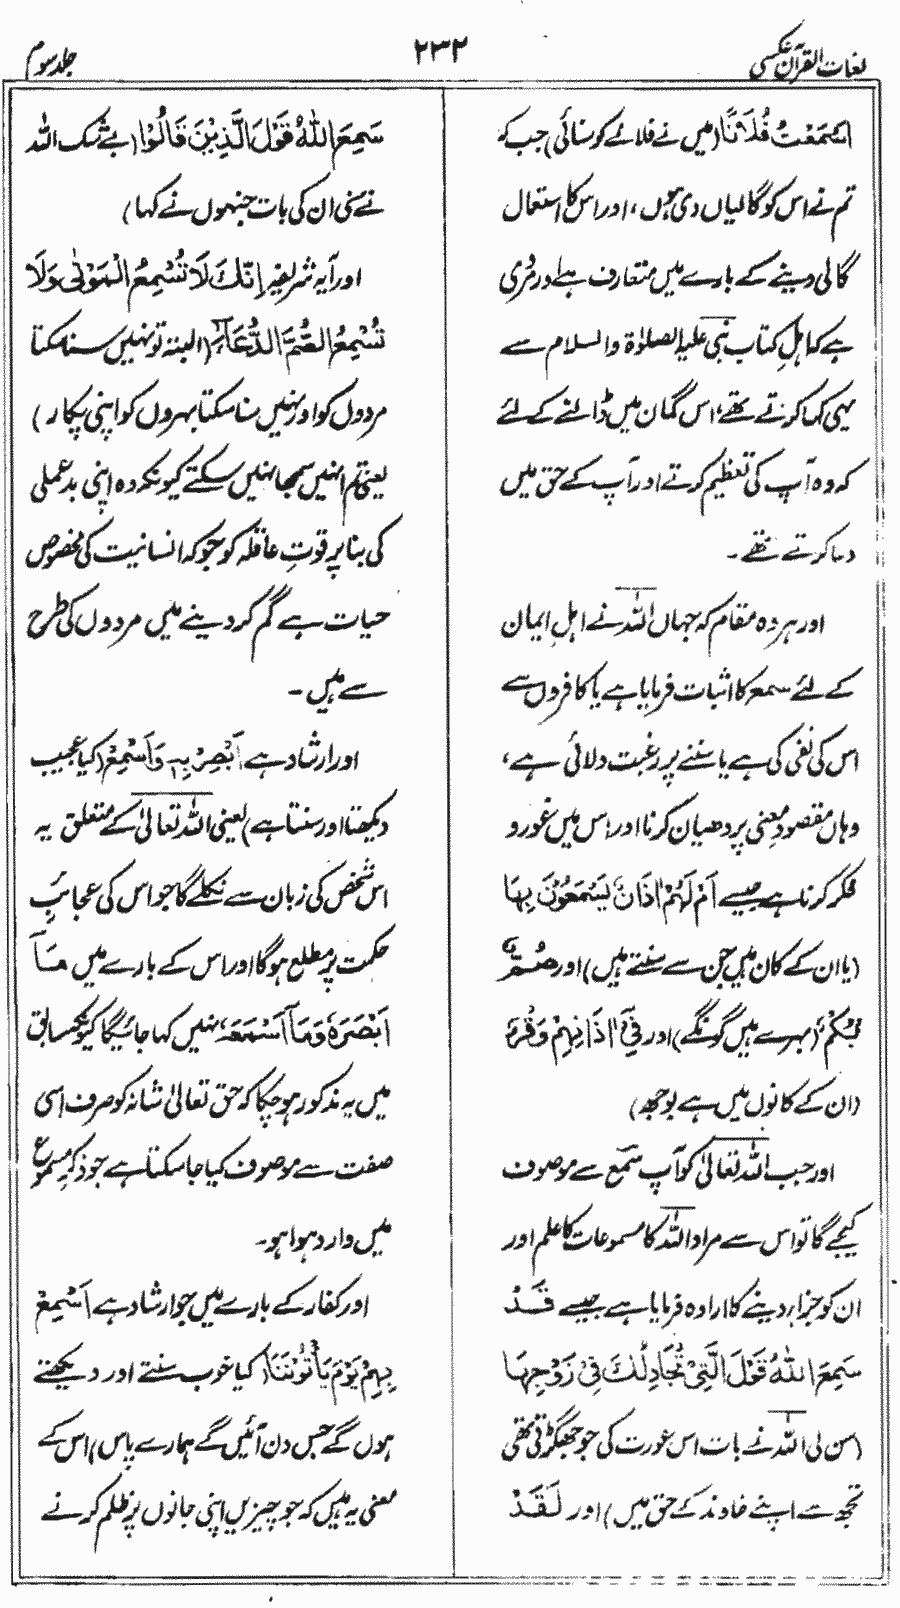 لغات القرآن عکسی
۲۳۲
جلد سوم
اَسْمَعْتُ فُلَانًا (میں نے فلانے کو سنائی) جب کہ
تم نے اس کو گالیاں دی ہوں، اور اس کا استعمال
گالی دینے کے بارے میں متعارف ہے اور مروی
ہے کہ اہلِ کتاب نبی علیہ الصلوٰۃ والسلام سے
یہی کہا کرتے تھے، اس گمان میں ڈالنے کے لئے
کہ وہ آپ کی تعظیم کرتے اور آپ کے حق میں
دعا کرتے تھے۔
اور ہر وہ مقام کہ جہاں اللہ نے اہلِ ایمان
کے لئے سمع کا اثبات فرمایا ہے یا کافروں سے
اس کی نفی کی ہے یا سننے پر رغبت دلائی ہے،
وہاں مقصود معنی پر دھیان کرنا اور اس میں غور و
فکر کرنا ہے جیسے اَمْ لَهُمْ اٰذَانٌ يَّسْمَعُوْنَ بِهَا
(یا ان کے کان ہیں جن سے سنتے ہیں) اور صُمٌّ
بُكْمٌ (بہرے ہیں گونگے) اور فِيْ اٰذَانِهِمْ وَقْرٌ
(ان کے کانوں میں ہے بوجھ)
اور جب اللہ تعالیٰ کو آپ سمع سے موصوف
کیجے گا تو اس سے مراد اللہ کا مسموعات کا علم اور
ان کو جزا دینے کا ارادہ فرمایا ہے جیسے قَدْ
سَمِعَ اللهُ قَوْلَ الَّتِيْ تُجَادِلُكَ فِيْ زَوْجِهَا
(سن لی اللہ نے بات اس عورت کی جو جھگڑتی تھی
تجھ سے اپنے خاوند کے حق میں) اور لَقَدْ
سَمِعَ اللهُ قَوْلَ الَّذِيْنَ قَالُوْا (بے شک اللہ
نے سنی ان کی بات جنہوں نے کہا)
اور آیہ شریفہ اِنَّكَ لَا تُسْمِعُ الْمَوْتٰى وَلَا
تُسْمِعُ الصُّمَّ الدُّعَآءَ (البتہ تو نہیں سنا سکتا
مردوں کو اور نہیں سنا سکتا بہروں کو اپنی پکار)
یعنی تم انہیں سمجھا نہیں سکتے کیونکہ وہ اپنی بدعملی
کی بنا پر قوتِ عاقلہ کو جو کہ انسانیت کی مخصوص
حیات ہے گم کر دینے میں مردوں کی طرح
سے ہیں۔
اور ارشاد ہے اَبْصِرْ بِهٖ وَاَسْمِعْ (کیا عجیب
دیکھتا اور سنتا ہے) یعنی اللہ تعالیٰ کے متعلق یہ
اس شخص کی زبان سے نکلے گا جو اس کی عجائب
حکمت پر مطلع ہوگا اور اس کے بارے میں مَآ
اَبْصَرَهٗ وَمَآ اَسْمَعَهٗ نہیں کہا جائیگا کیونکہ سابق
میں یہ مذکور ہو چکا کہ حق تعالیٰ شانہ کو صرف اسی
صفت سے موصوف کیا جا سکتا ہے جو ذکرِ مسموع
میں وارد ہوا ہو۔
اور کفار کے بارے میں جو ارشاد ہے اَسْمِعْ
بِهِمْ يَوْمَ يَأْتُوْنَنَا (کیا خوب سنتے اور دیکھتے
ہوں گے جس دن آئیں گے ہمارے پاس) اس کے
معنی یہ ہیں کہ جو چیزیں اپنی جانوں پر ظلم کرنے